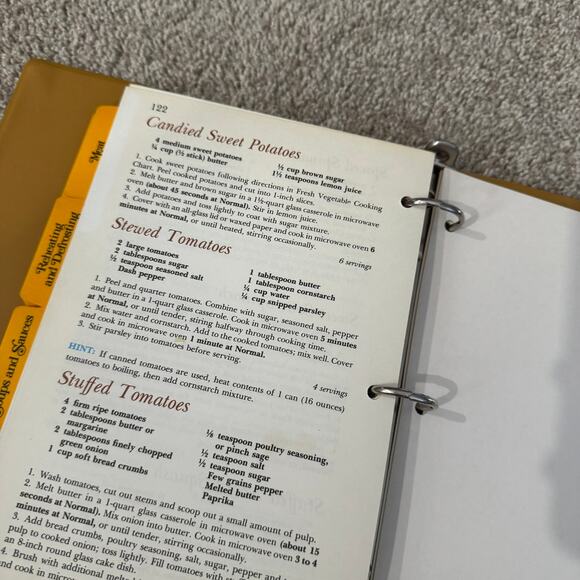 122
Candied Sweet Potatoes
4 medium sweet potatoes
¼ cup (½ stick) butter
½ cup brown sugar
1½ teaspoons lemon juice
1. Cook sweet potatoes following directions in Fresh Vegetable Cooking
Chart. Peel cooked potatoes and cut into 1-inch slices.
2. Melt butter and brown sugar in a 1½-quart glass casserole in microwave
oven (about 45 seconds at Normal). Stir in lemon juice.
3. Add potatoes and toss lightly to coat with sugar mixture.
4. Cover with an all-glass lid or waxed paper and cook in microwave oven 6
minutes at Normal, or until heated, stirring occasionally.
6 servings
Stewed Tomatoes
2 large tomatoes
2 tablespoons sugar
½ teaspoon seasoned salt
Dash pepper
1 tablespoon butter
1 tablespoon cornstarch
¼ cup water
¼ cup snipped parsley
1. Peel and quarter tomatoes. Combine with sugar, seasoned salt, pepper
and butter in a 1-quart glass casserole. Cook in microwave oven 5 minutes
at Normal, or until tender, stiring halfway through cooking time.
2. Mix water and cornstarch. Add to the cooked tomatoes; mix well. Cover
and cook in microwave oven 1 minute at Normal.
3. Stir parsley into tomatoes before serving.
4 servings
HINT: If canned tomatoes are used, heat contents of 1 can (16 ounces)
tomatoes to boiling, then add cornstarch mixture.
Stuffed Tomatoes
4 firm ripe tomatoes
2 tablespoons butter or
margarine
2 tablespoons finely chopped
green onion
1 cup soft bread crumbs
⅛ teaspoon poultry seasoning,
or pinch sage
½ teaspoon salt
½ teaspoon sugar
Few grains pepper
Melted butter
Paprika
1. Wash tomatoes, cut out stems and scoop out a small amount of pulp.
2. Melt butter in a 1-quart glass casserole in microwave oven (about 15
seconds at Normal). Mix onion into butter. Cook in microwave oven 3 to 4
minutes at Normal, or until tender, stirring occasionally.
3. Add bread crumbs, poultry seasoning, salt, sugar, pepper and
pulp to cooked onion; toss lightly. Fill tomatoes with
an 8-inch round glass cake dish.
4. Brush with additional
and cook in
Meat
Reheating
and Defrosting
Soups and Sauces